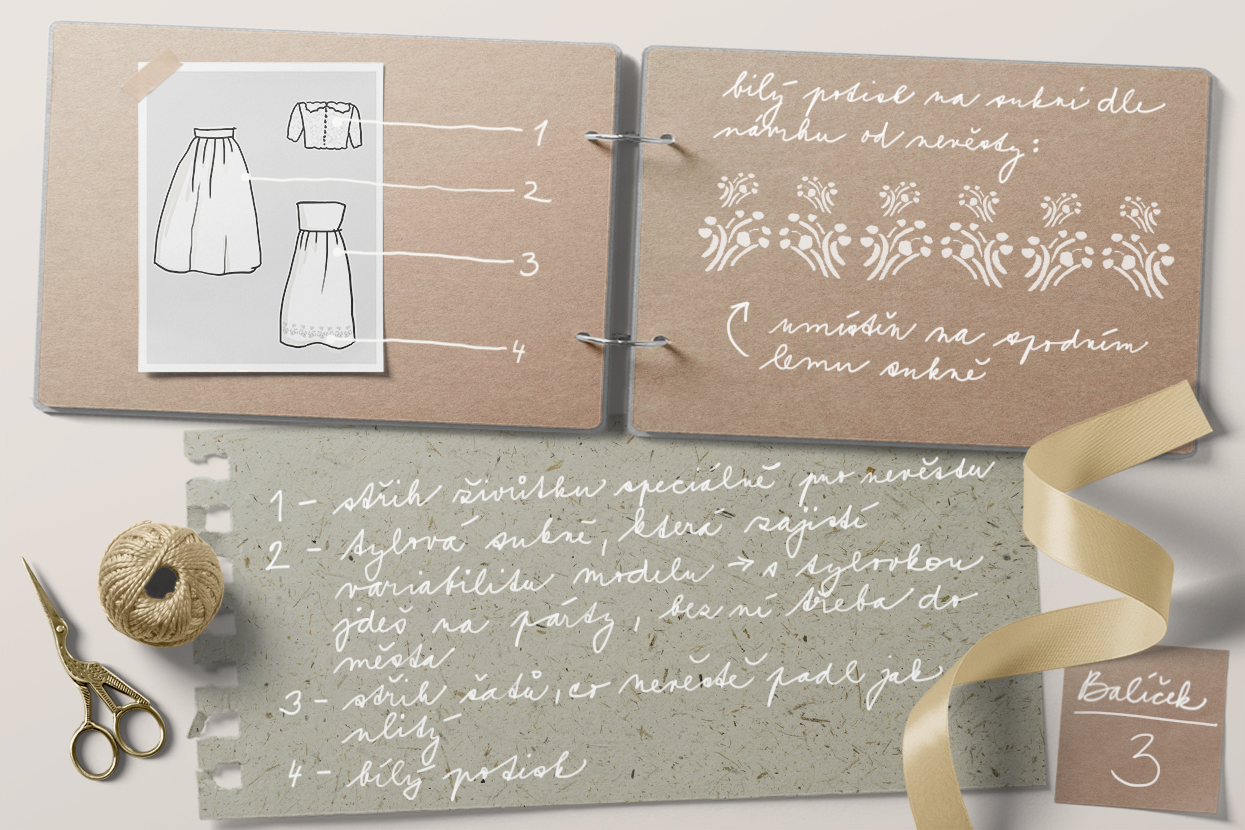 1
2
3
4
bílý potisk na sukni dle
návrhu od nevěsty:
umístěn na spodním
lemu sukně
1 – střih živůtku speciálně pro nevěstu
2 – tylová sukně, která zajistí
variabilitu modelu → s tylovkou
jdeš na párty, bez ní třeba do
města
3 – střih šatů, co nevěstě padl jak
ulitý
4 – bílý potisk
Balíček
3